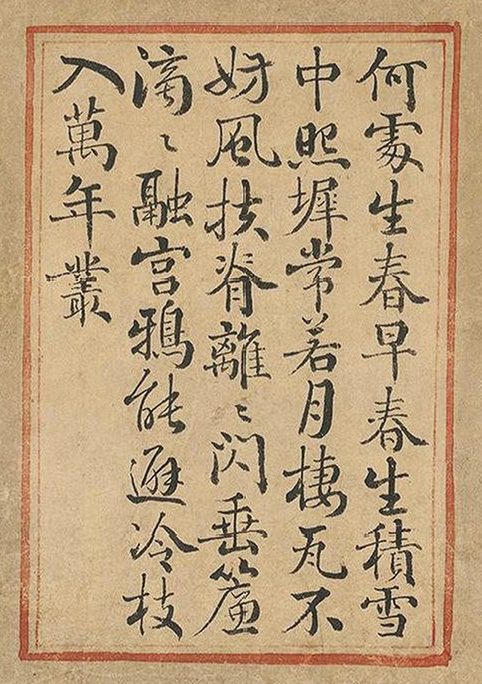 何處生春早春生積雪
中照墀常若月棲瓦不
妨風扶脊離〻閃垂簷
滴〻融宮鴉能遯冷枝
入萬年叢